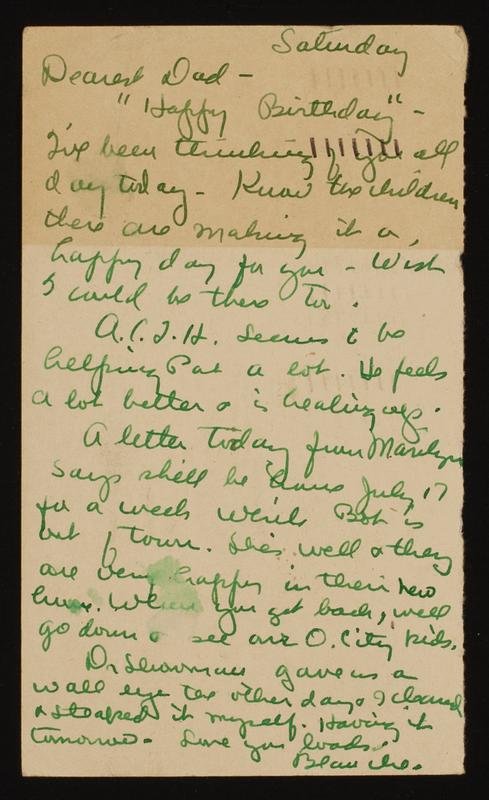 Saturday
Dearest Dad –
"Happy Birthday" –
I've been thinking of you all
day today – Know the children
there are making it a
happy day for you – Wish
I could be there too.
A.C.T.H. seems to be
helping Pat a lot. He feels
a lot better & is healing up.
A letter today from Marilyn
says she'll be home July 17
for a week while Bob is
out of town. She's well & they
are very happy in their new
home. When you get back, we'll
go down & see our O. City kids.
Dr gave us a
wall eye the other day & I cleaned
& it myself. Having it
tomorrow – Love you loads.
Blanche.